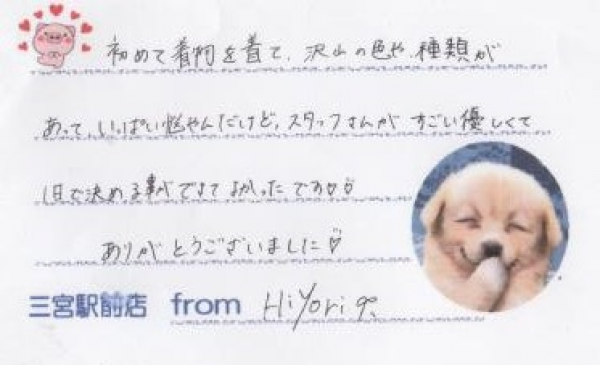 初めて着物を着て、沢山の色や、種類が
あって、いっぱい悩やんだけど、スタッフさんが すごい優しくて
1日で決める事ができてよかったです♡♡
ありがとうございました♡
三宮駅前店 from HiYori